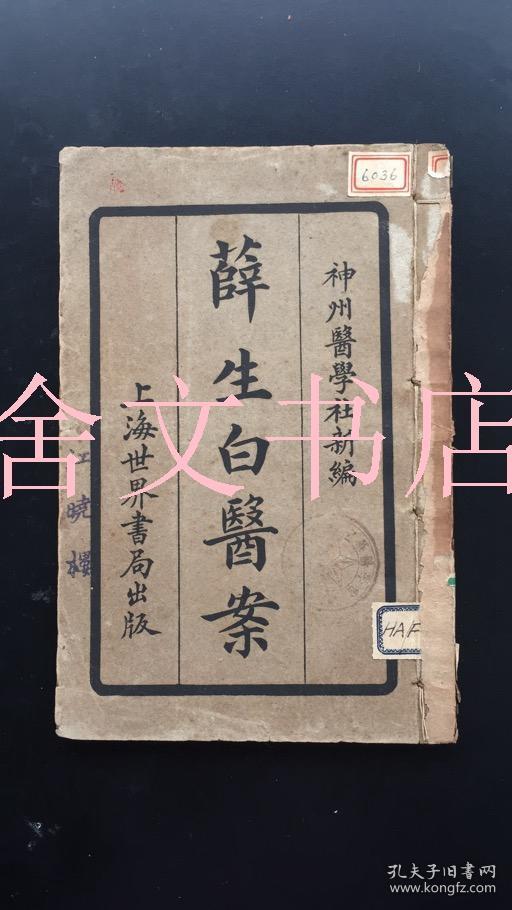 6036
神州醫學社新編
薛生白醫案
上海世界書局出版
江曉樓
HAF
舍文书店
孔夫子旧书网
www.kongfz.com